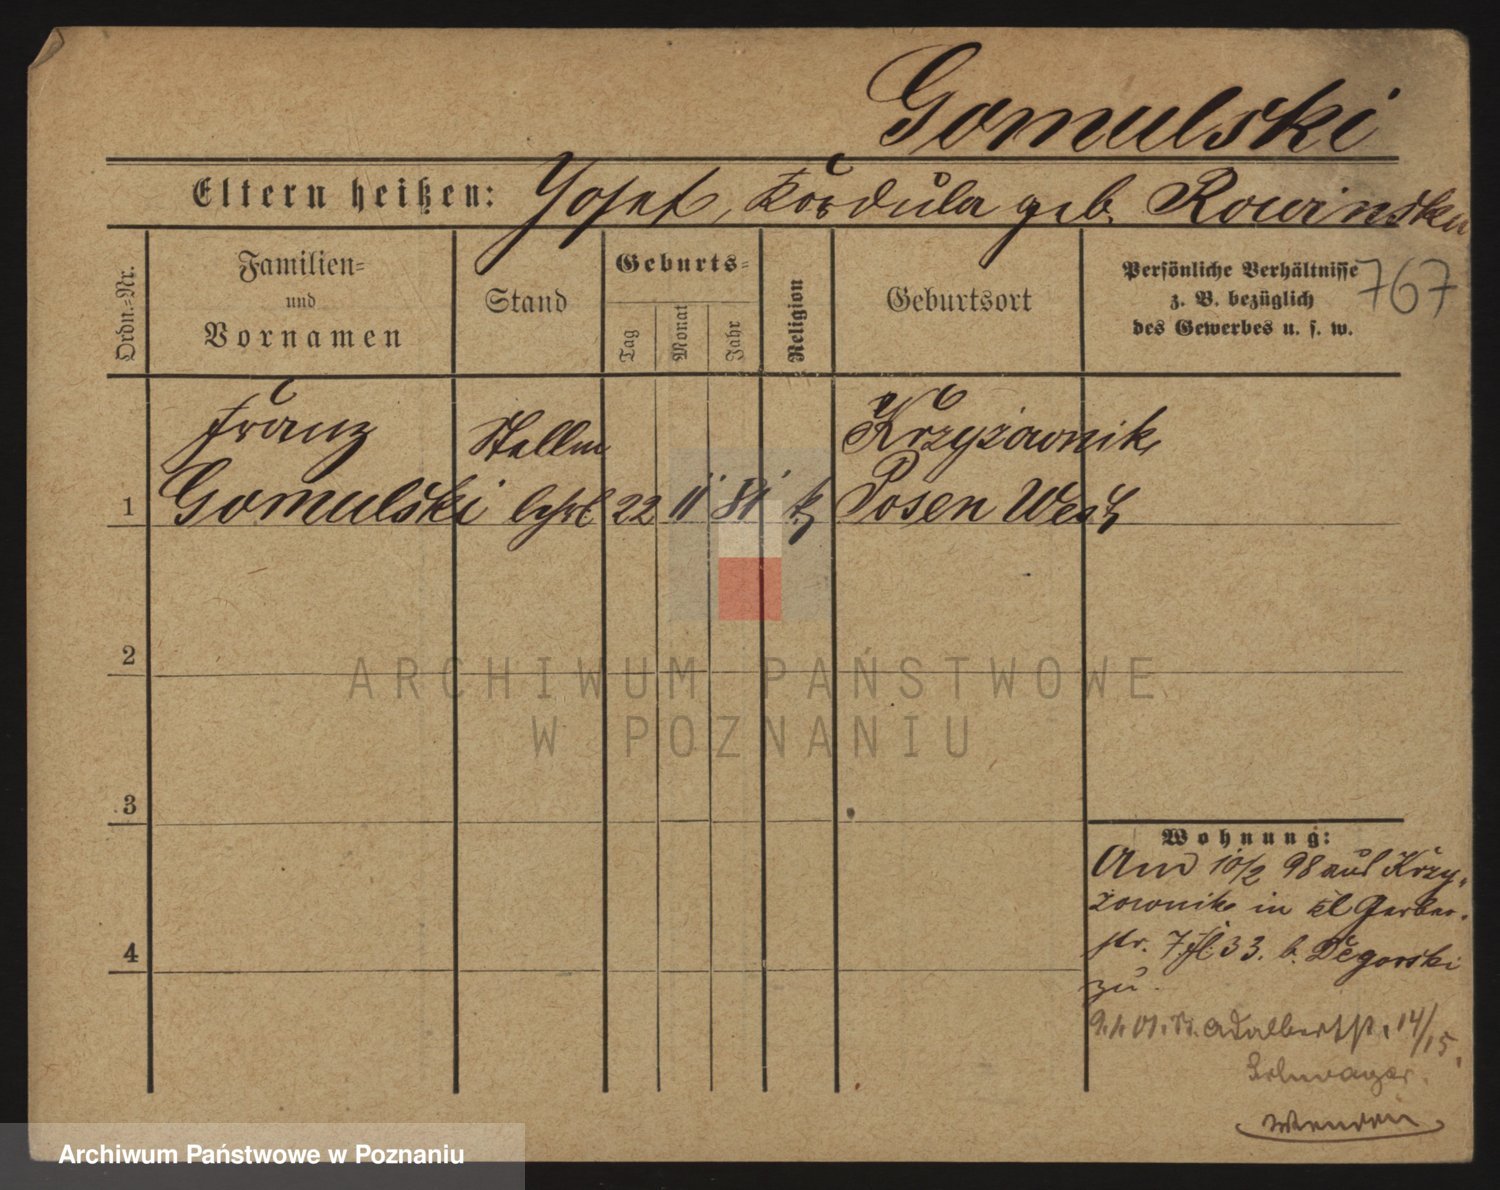 Gomulski
Eltern heißen: Josef, Kordula geb. Rowinska
767
Ordn.=Nr.
Familien=
und
Vornamen
Stand
Geburts=
Tag
Monat
Jahr
Religion
Geburtsort
Persönliche Verhältnisse
z. B. bezüglich
des Gewerbes u. s. w.
1
Franz
Gomulski
Stellm
lehrl
22
11
81
k.
Krzyżownik
Posen West
2
3
4
Wohnung:
Am 10/2 98 aus Krzy-
żownik in kl Gerber-
str. 7 33. b. Degorski
zu.
Adalbertst. 14/15.
Schwager.
Wenden
ARCHIWUM PAŃSTWOWE
W POZNANIU
Archiwum Państwowe w Poznaniu